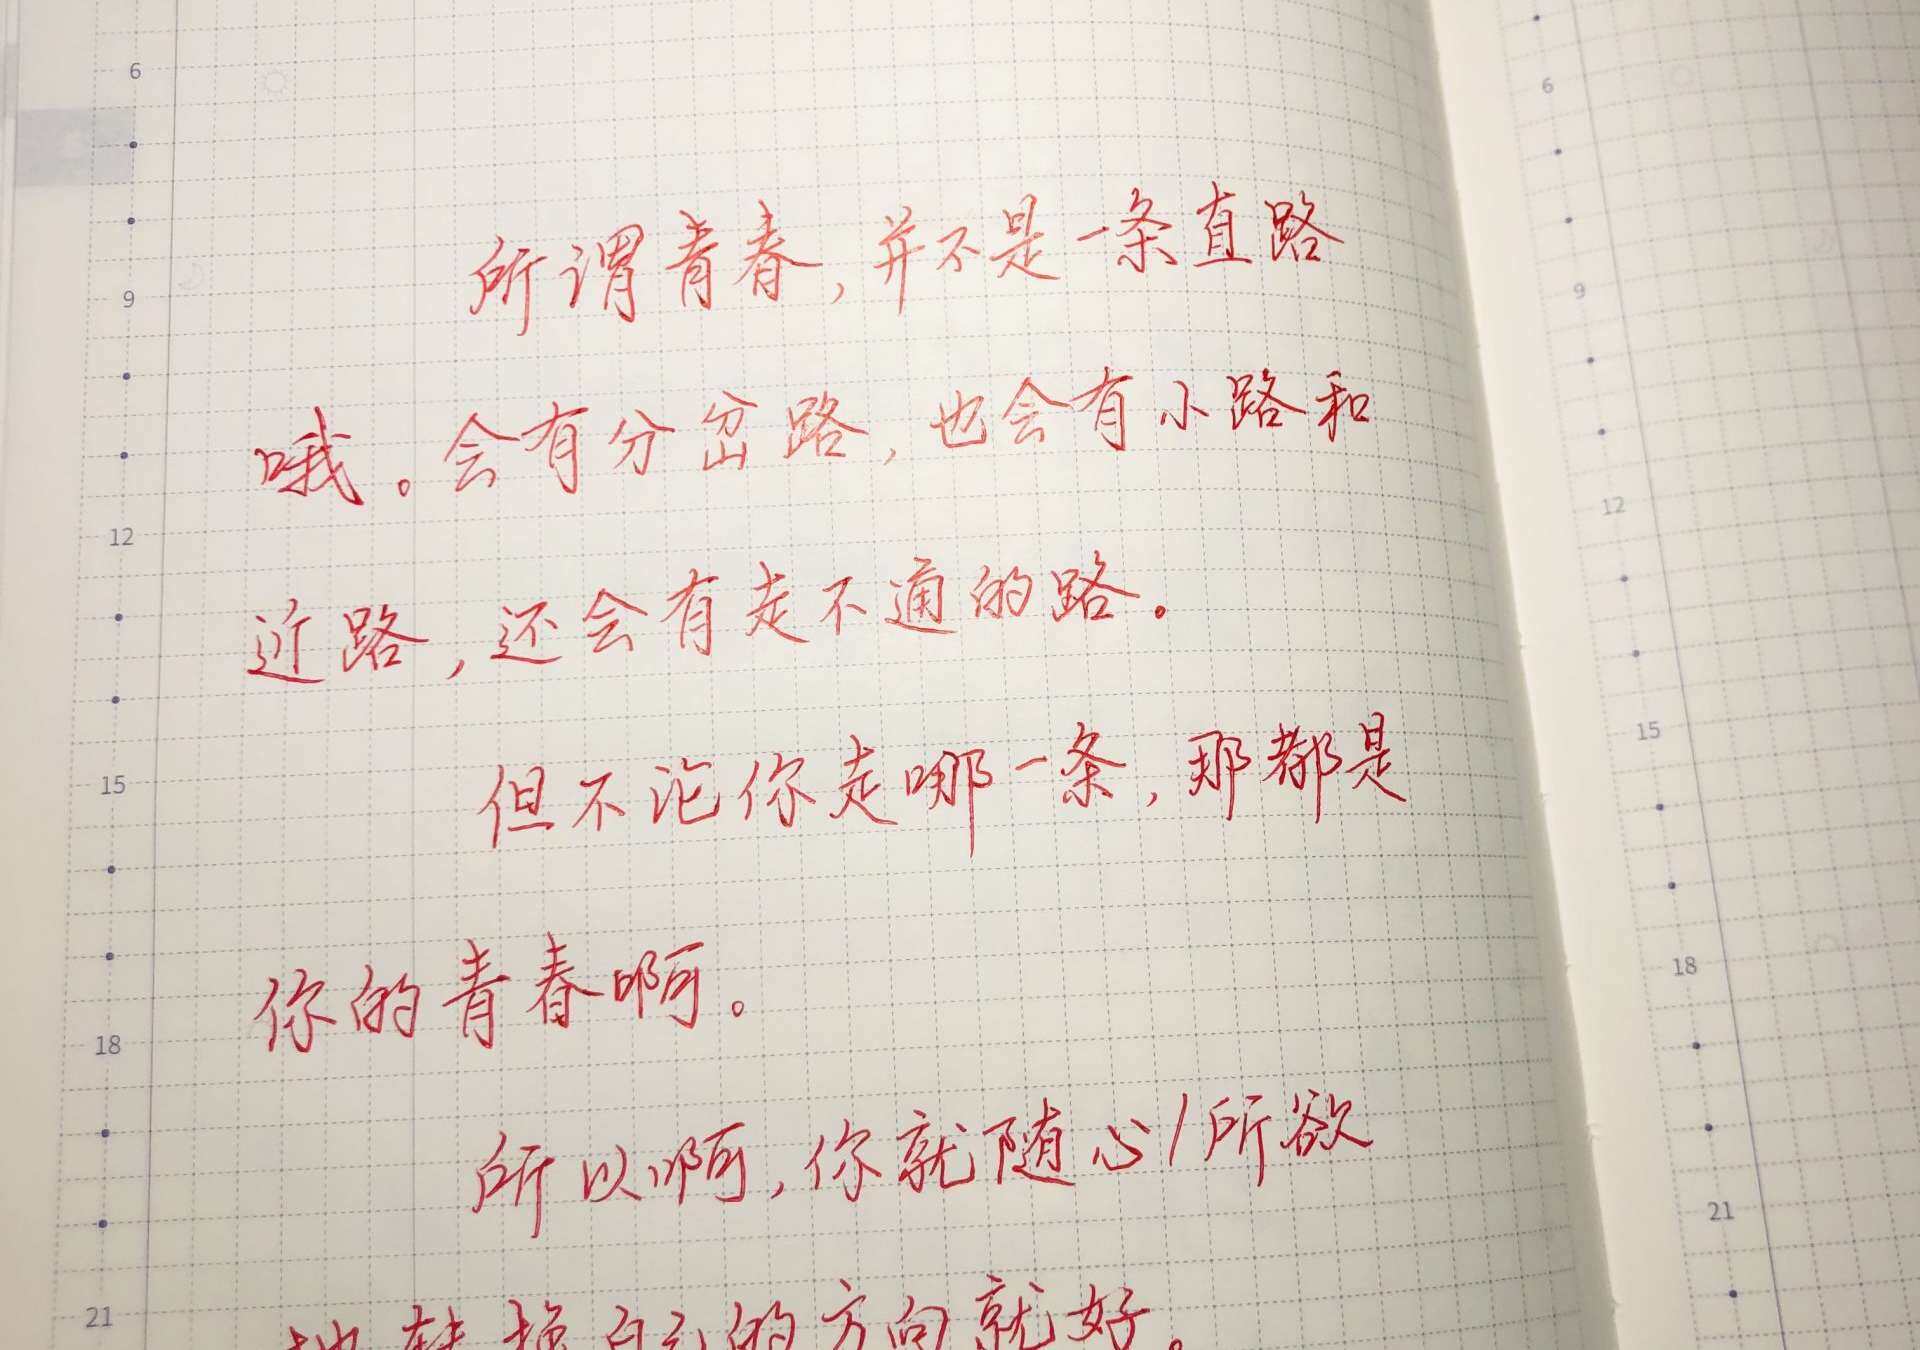 6
所谓青春,并不是一条直路
9
哦。会有分岔路,也会有小路和
12
近路,还会有走不通的路。
但不论你走哪一条,那都是
15
你的青春啊。
18
所以啊,你就随心所欲
地转换自己的方向就好。
21
6
9
12
15
18
21